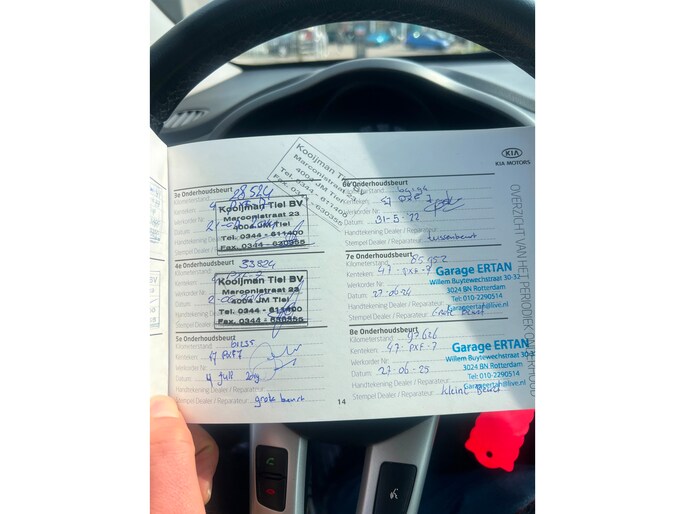 KIA
KIA MOTORS
OVERZICHT VAN HET PERIODIEK ONDERHOUD
3e Onderhoudsbeurt
Kilometerstand
28524
Kenteken:
Werkorder Nr
Datum:
Handtekening Dealer / Reparateur
Stempel Dealer / Reparateur
Kooijman Tiel BV
Marconistraat 23
4004 JM Tiel
Tel. 0344 - 611400
Fax. 0344 - 630355
4e Onderhoudsbeurt
Kilometerstand
33824
Kenteken:
Werkorder Nr
Datum:
Handtekening Dealer / Reparateur
Stempel Dealer / Reparateur
Kooijman Tiel BV
Marconistraat 23
4004 JM Tiel
Tel. 0344 - 611400
Fax. 0344 - 630355
5e Onderhoudsbeurt
Kilometerstand
Kenteken:
Werkorder Nr
Datum: 4 Juli
Handtekening Dealer / Reparateur
Stempel Dealer / Reparateur: grote beurt
Kooijman Tiel BV
Marconistraat 23
4004 JM Tiel
Tel. 0344 - 611400
Fax. 0344 - 630355
6e Onderhoudsbeurt
Kilometerstand
Kenteken:
Werkorder Nr
Datum: 31-5-22
Handtekening Dealer / Reparateur
Stempel Dealer / Reparateur: tussenbeurt
7e Onderhoudsbeurt
Kilometerstand 85952
Kenteken: 47-PXF-7
Werkorder Nr
Datum: 27-06-24
Handtekening Dealer / Reparateur
Stempel Dealer / Reparateur: Grote Beurt
Garage ERTAN
Willem Buytewechstraat 30-32
3024 BN Rotterdam
Tel: 010-2290514
Garageertan@live.nl
8e Onderhoudsbeurt
Kilometerstand 97626
Kenteken: 47-PXF-7
Werkorder Nr
Datum: 27-06-25
Handtekening Dealer / Reparateur
Stempel Dealer / Reparateur: kleine Beurt
Garage ERTAN
Willem Buytewechstraat 30-32
3024 BN Rotterdam
Tel: 010-2290514
Garageertan@live.nl
14